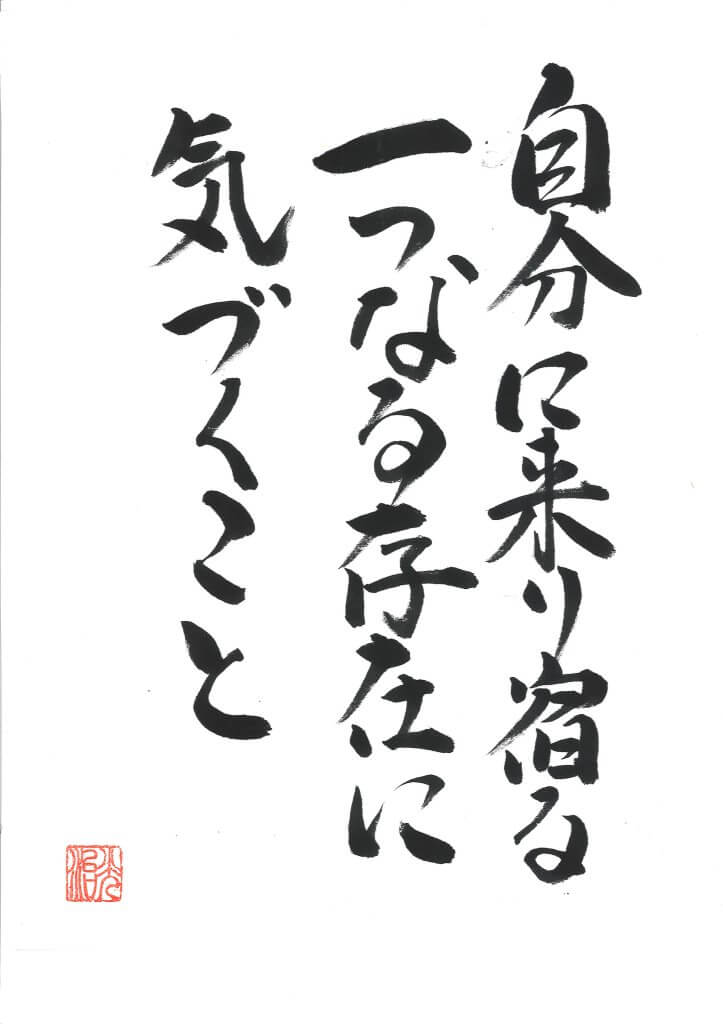 自分に来り宿る
一つなる存在に
気づくこと